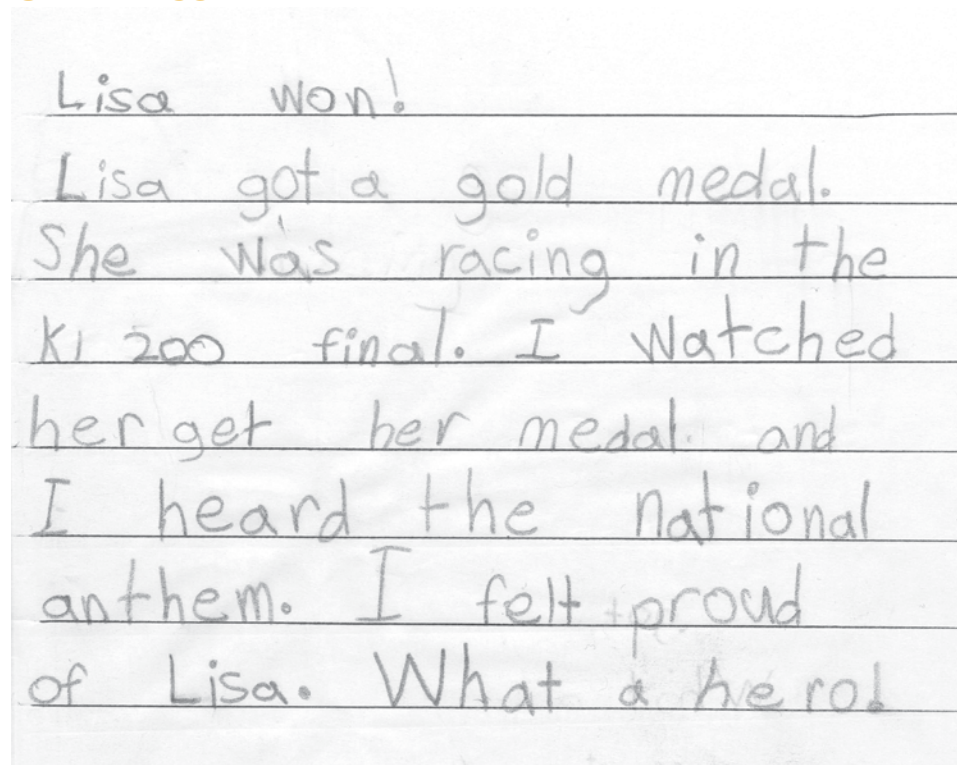 Lisa won!
Lisa got a gold medal.
She was racing in the
K1 200 final. I watched
her get her medal and
I heard the national
anthem. I felt proud
of Lisa. What a hero!